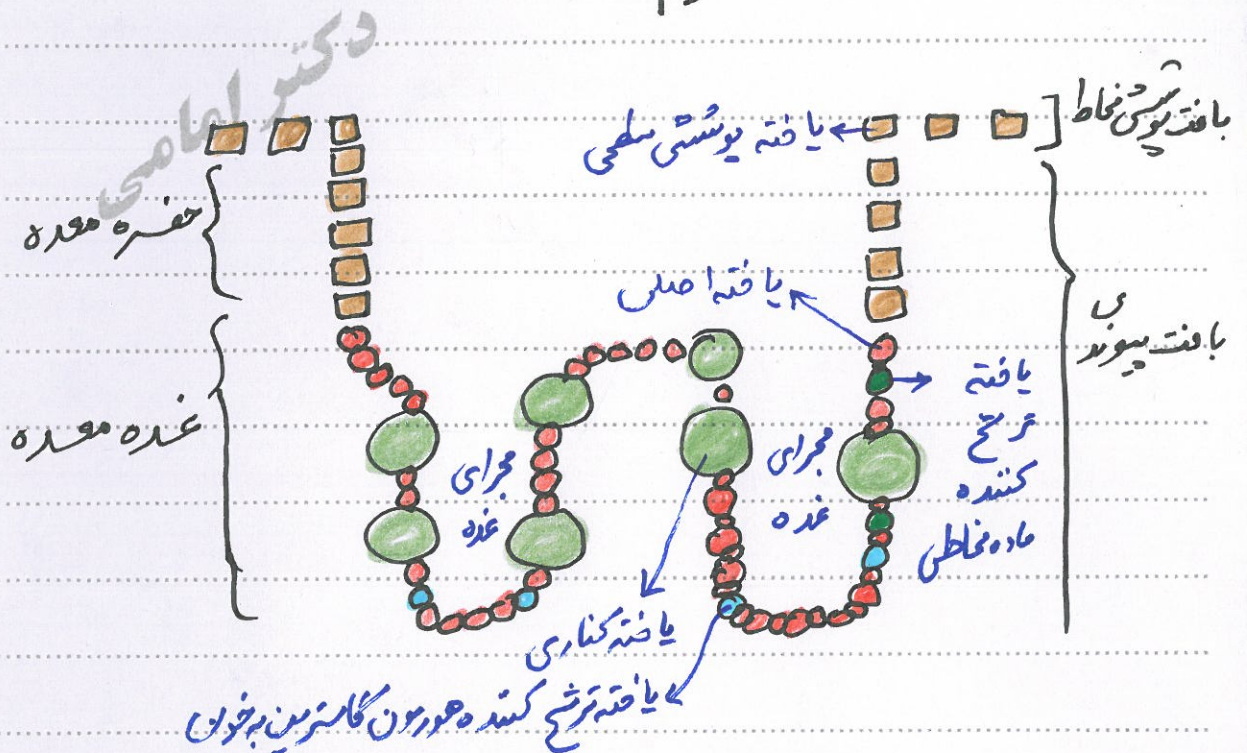 دکتر امامی
بافت پوششی مخاط
یاخته پوششی سطحی
حفره معده
یاخته اصلی
بافت پیوندی
یاخته
ترشح
کننده
ماده مخاطی
غده معده
مجرای
غده
مجرای
غده
یاخته کناری
یاخته ترشح کننده هورمون گاسترین به خون